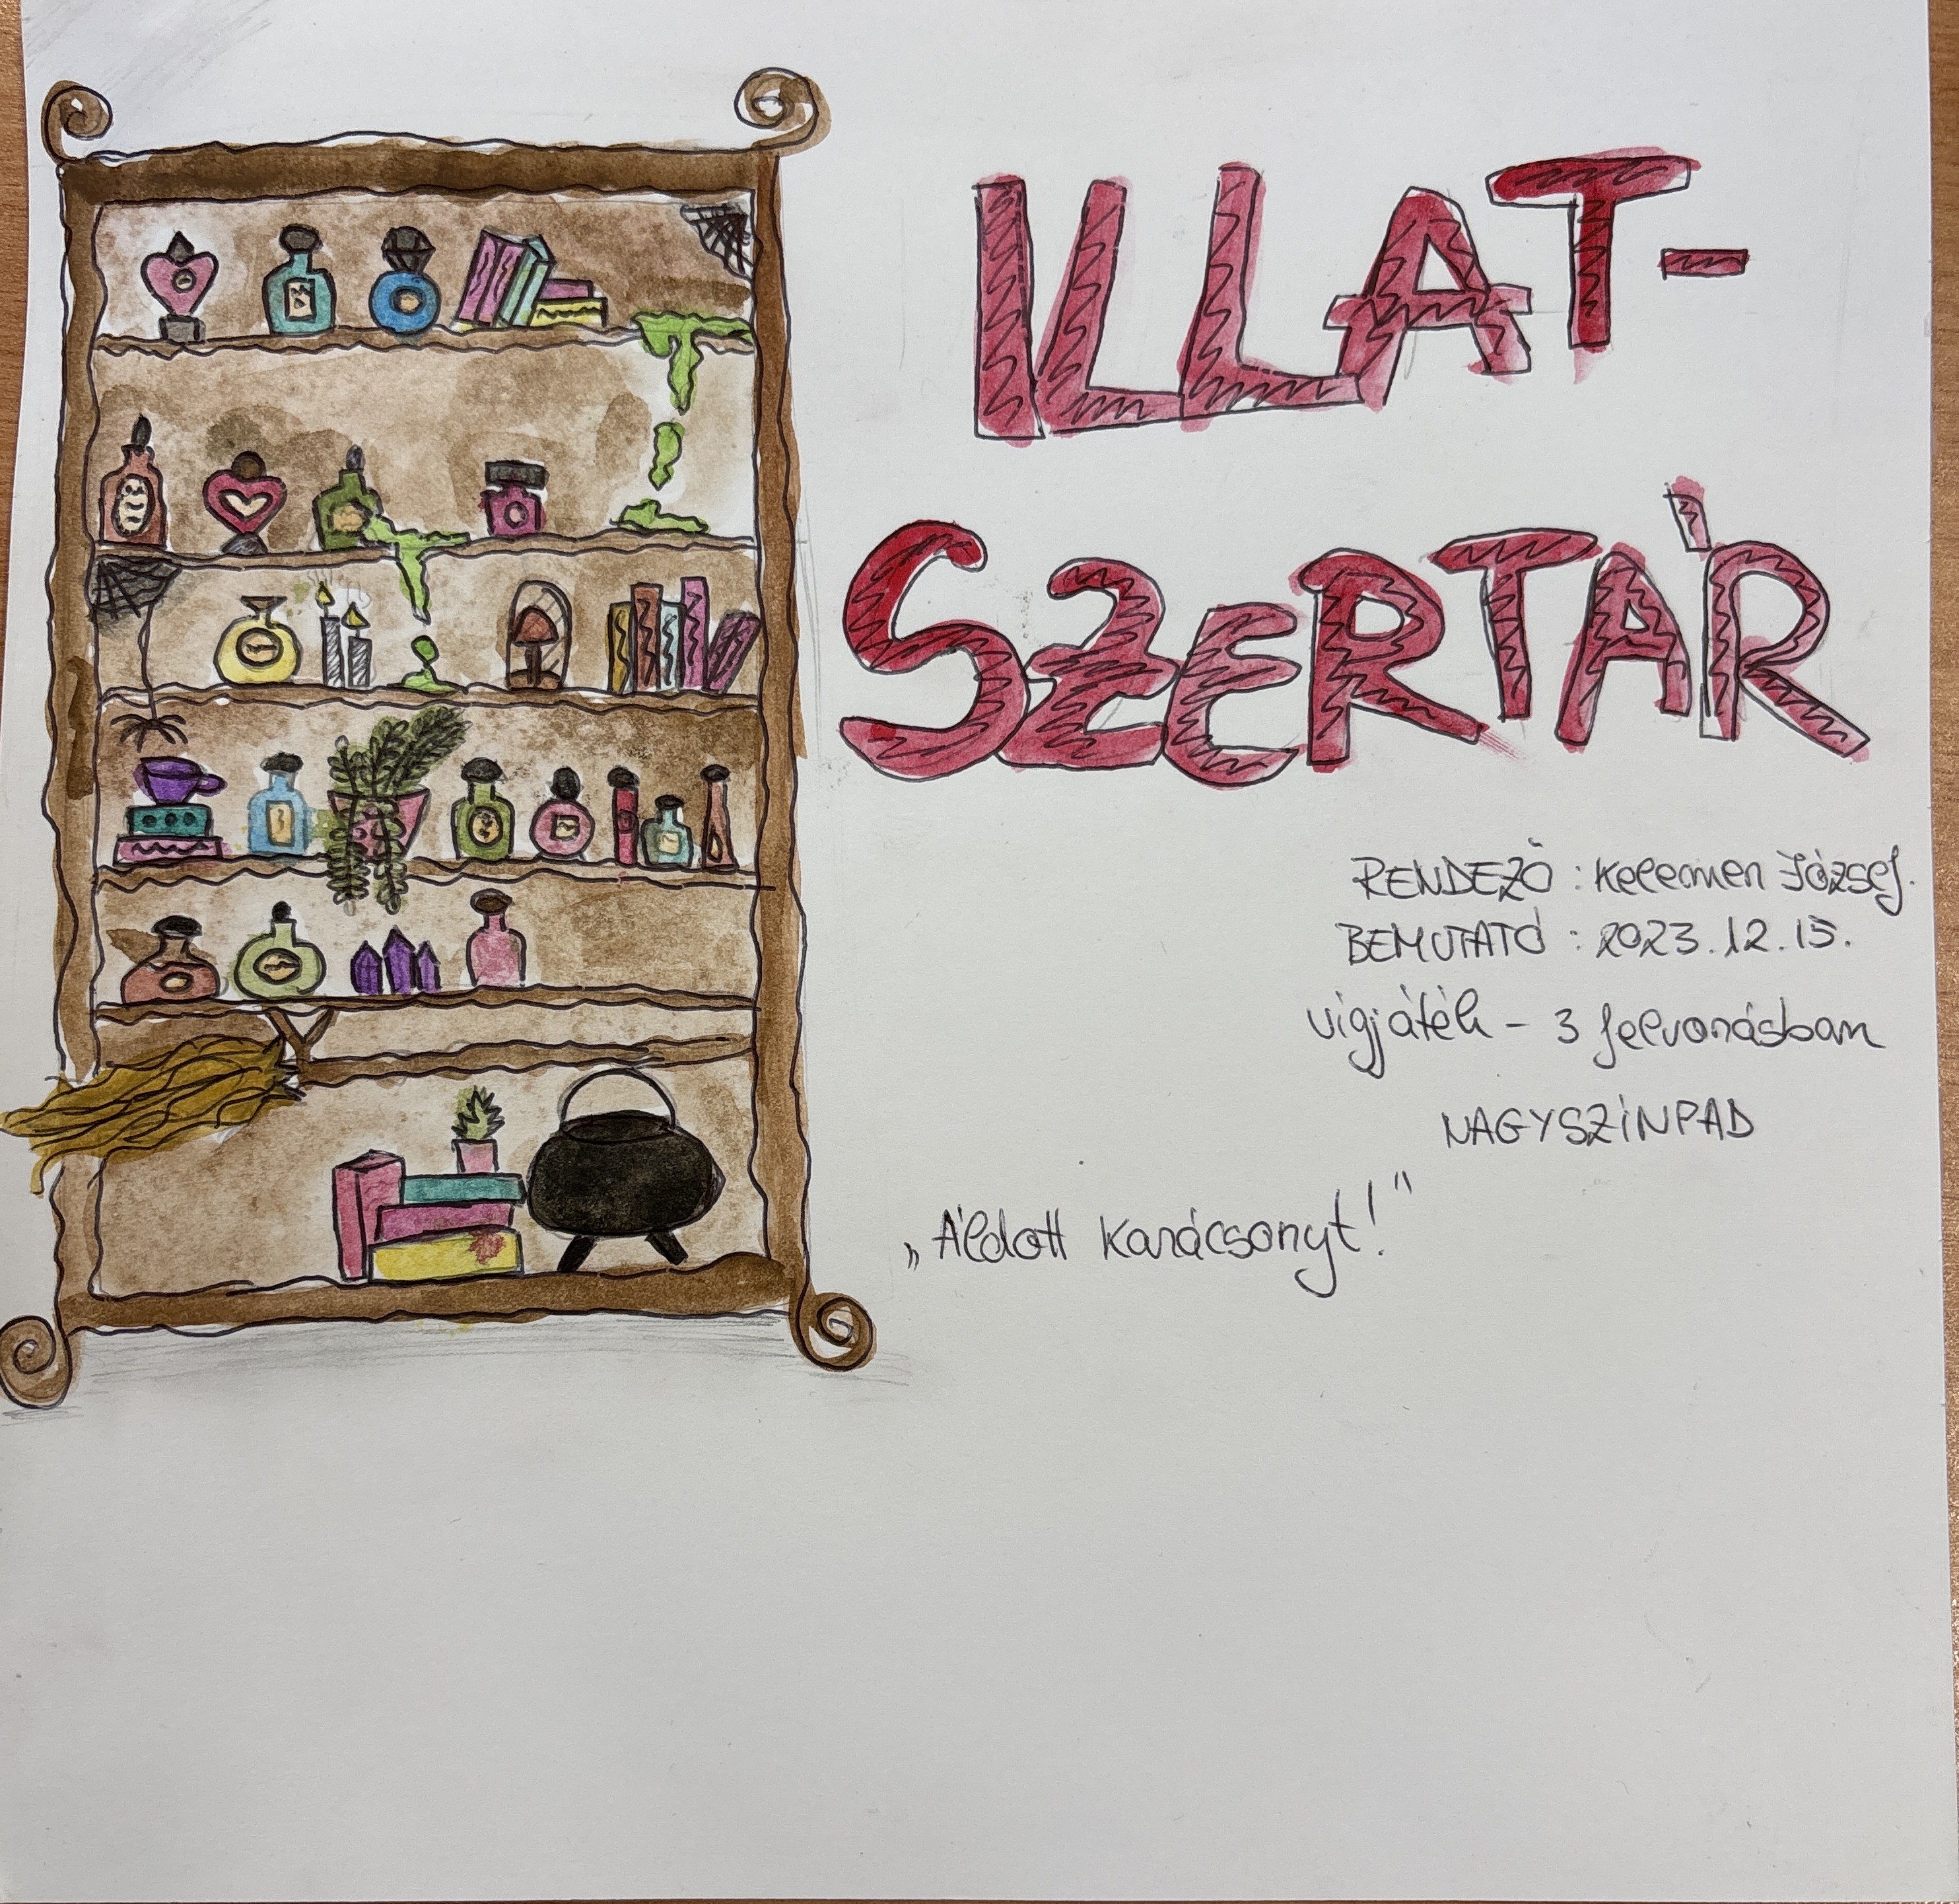 ILLAT-
SZERTÁR
RENDEZŐ : Kelemen József.
BEMUTATÓ : 2023.12.15.
vígjáték - 3 felvonásban
NAGYSZÍNPAD
„Áldott Karácsonyt!"